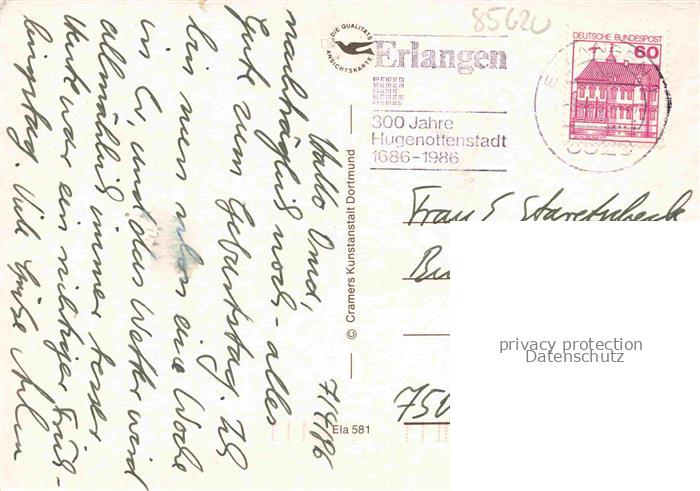 85620
DIE QUALITÄTS
ANSICHTSKARTE
Erlangen
300 Jahre
Hugenottenstadt
1686-1986
DEUTSCHE BUNDESPOST
60
© Cramers Kunstanstalt Dortmund
Ela 581
7/4/86
Hallo Omi,
nachträglich noch alles
Gute zum Geburtstag. Ich
bin nun schon eine Woche
in E, und das Wetter wird
allmählich immer besser
Heute war ein richtiger Früh-
lingstag. Viele Grüße
Frau
750
privacy protection
Datenschutz